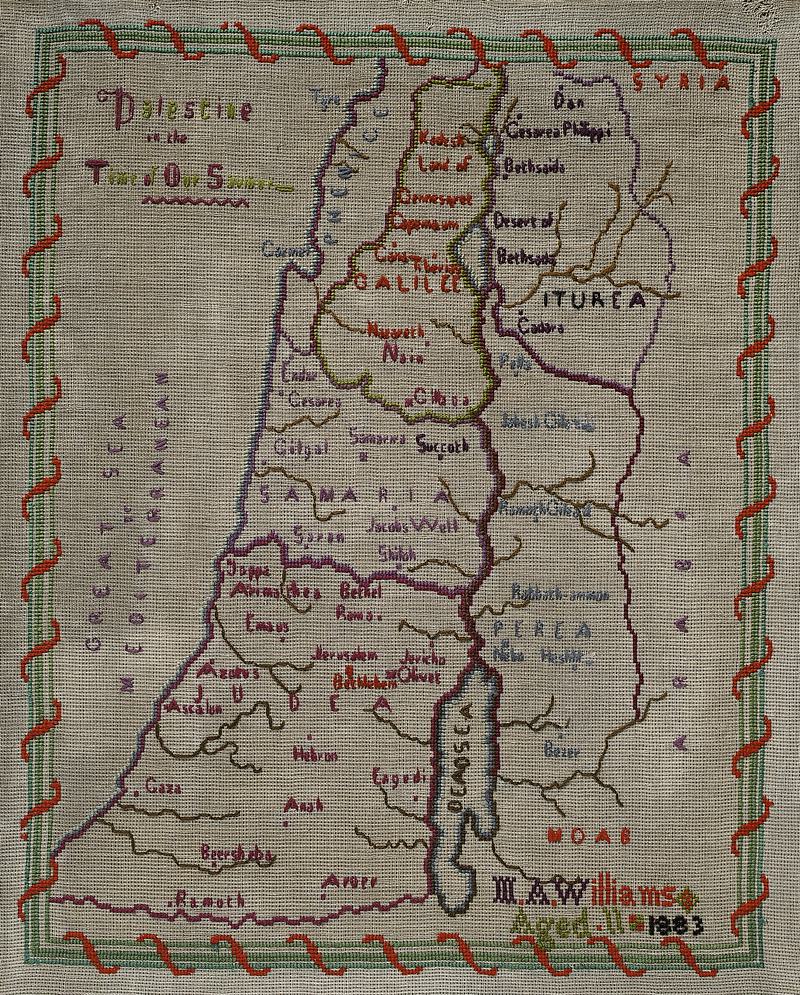 Palestine
in the
Time of Our Saviour
SYRIA
Tyre
PHENICE
Dan
Cesarea Philippi
Kedesh
Land of
Gennesaret
Capernaum
Bethsaida
Desert of
Bethsada
Carmel
Cana
Tiberias
GALILEE
ITUREA
Nazareth
Nain
Gadara
Pella
Endor
Cesarea
Gilboa
Gilgal
Samaria
Succoth
Jabesh Gilead
SAMARIA
Jacobs Well
Ramoth Gilead
Saron
Shiloh
GREAT SEA
or
MEDITERRANEAN
ARABIA
Joppa
Arimathea
Bethel
Rama
Emaus
Rabbath-ammon
PEREA
Jerusalem
Jericho
Nebo
Azotus
Bethlehem
Olivet
JUDEA
Ascalon
DEAD SEA
Hebron
Bezer
Gaza
Engedi
Anab
MOAB
Beersheba
Aroer
Ramoth
M.A.Williams
Aged.11
1883